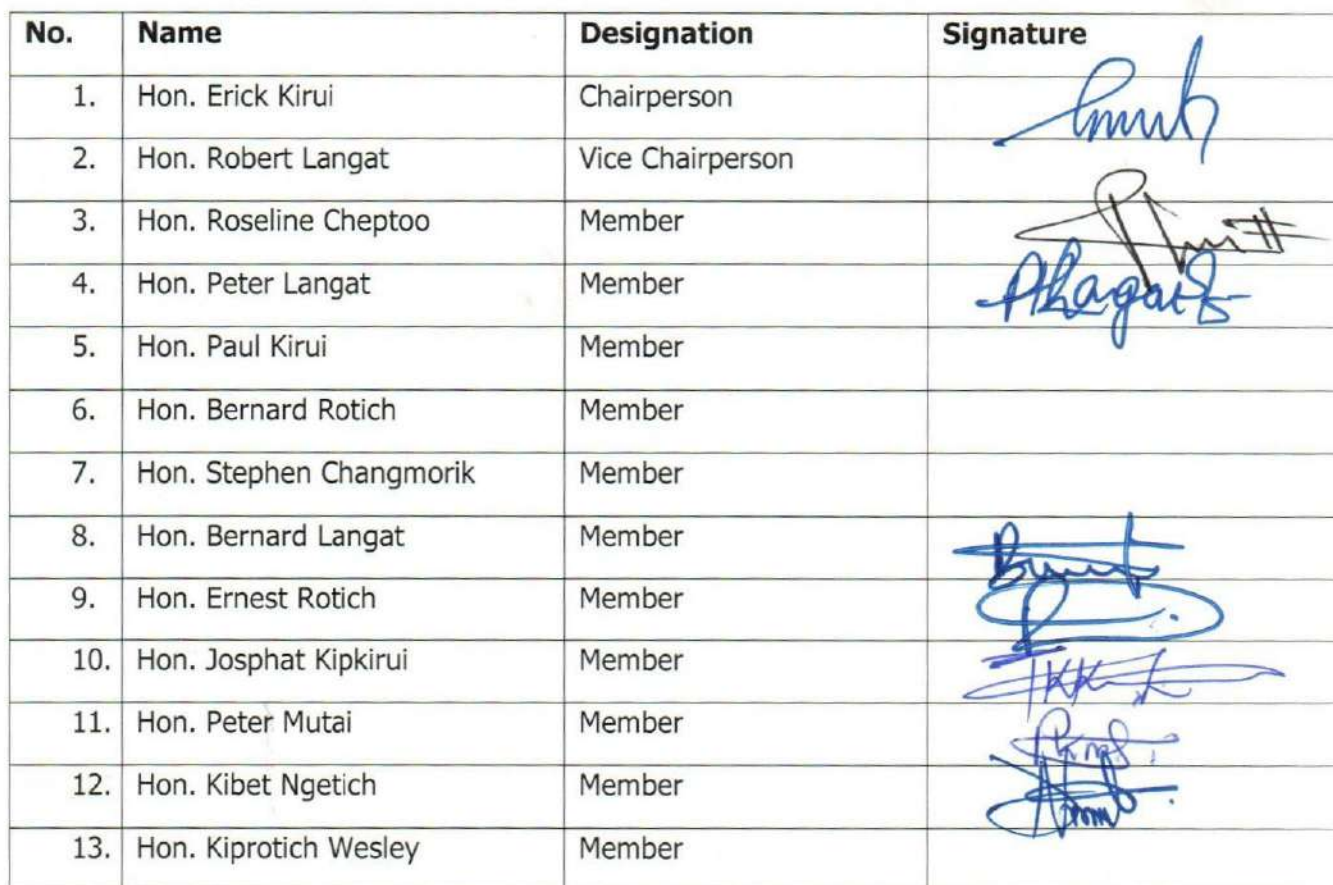 No. Name Designation Signature
1. Hon. Erick Kirui Chairperson
2. Hon. Robert Langat Vice Chairperson
3. Hon. Roseline Cheptoo Member
4. Hon. Peter Langat Member
5. Hon. Paul Kirui Member
6. Hon. Bernard Rotich Member
7. Hon. Stephen Changmorik Member
8. Hon. Bernard Langat Member
9. Hon. Ernest Rotich Member
10. Hon. Josphat Kipkirui Member
11. Hon. Peter Mutai Member
12. Hon. Kibet Ngetich Member
13. Hon. Kiprotich Wesley Member